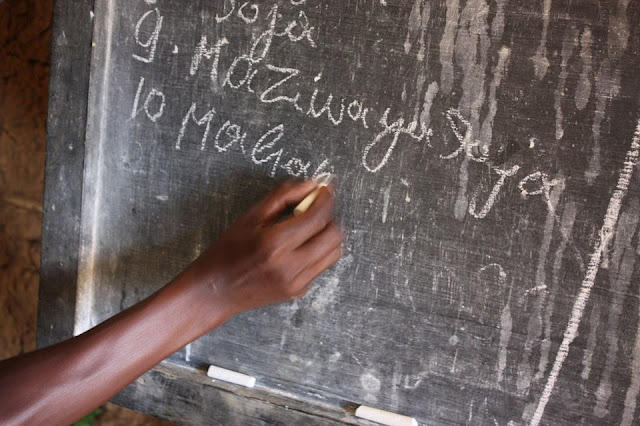 Soja
9. Maziwa ya Soja
10